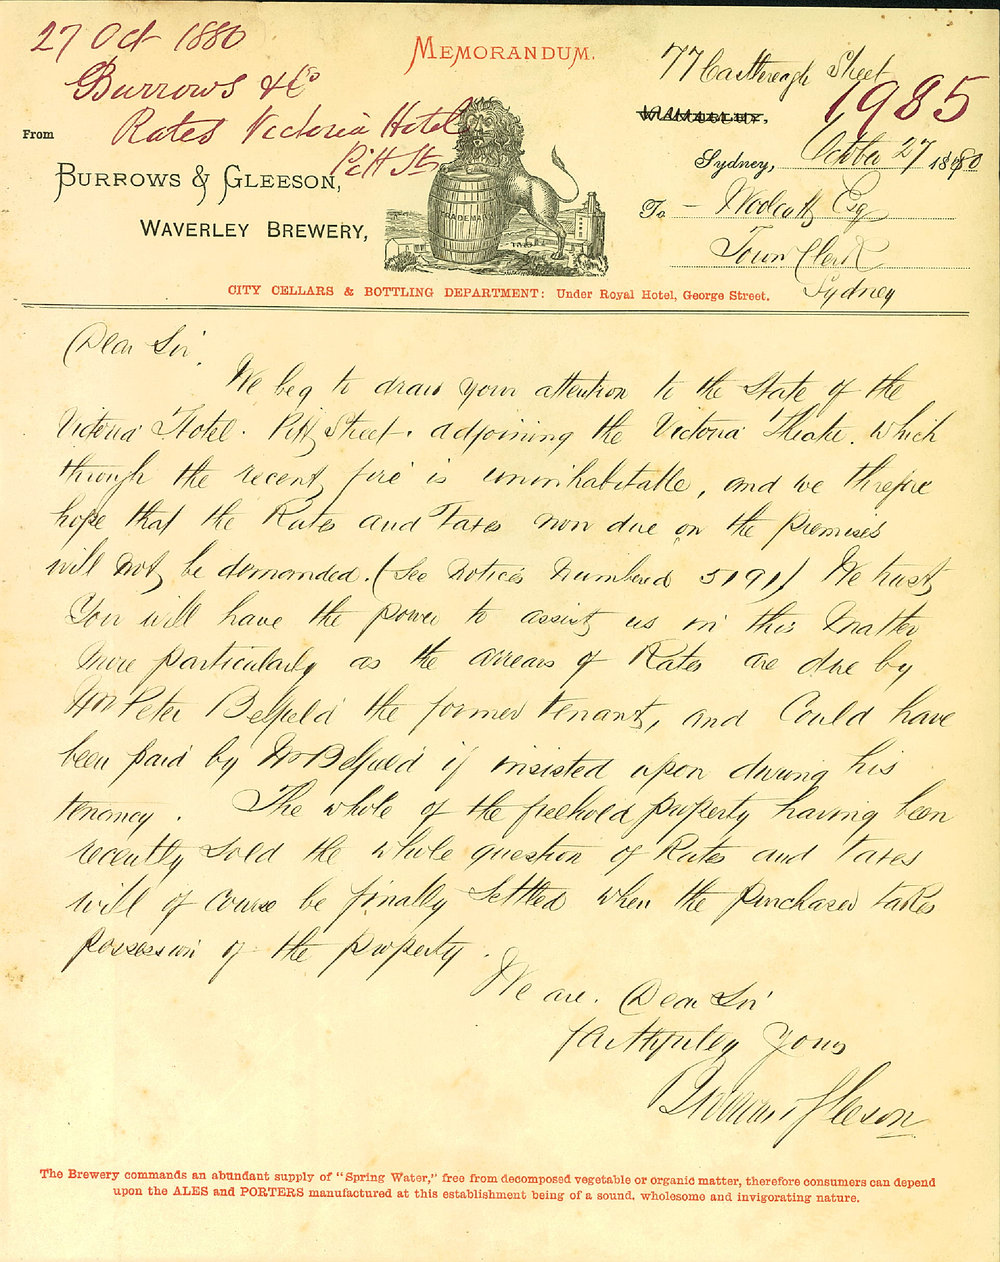 27 Oct 1880
Burrows & Co
Rates Victoria Hotel
Pitt St
MEMORANDUM.
77 Castlereagh Street
1985
WAVERLEY,
Sydney, October 27 1880
From
BURROWS & GLEESON,
WAVERLEY BREWERY,
TRADEMARK
To - Woolcott Esq
Town Clerk
Sydney
CITY CELLARS & BOTTLING DEPARTMENT: Under Royal Hotel, George Street.
Dear Sir.
We beg to draw your attention to the State of the
Victoria Hotel. Pitt Street. adjoining the Victoria Theatre. which
through the recent fire is uninhabitable, and we therefore
hope that the Rates and Taxes now due on the premises
will not be demanded. (See Notices Numbered 5191) We trust
You will have the power to assist us in this Matter
More particularly as the arrears of Rates are due by
Mr Peter Belfield the former tenant, and Could have
been paid by Mr Belfield if insisted upon during his
tenancy. The whole of the freehold property having been
recently Sold the whole question of Rates and Taxes
will of course be finally Settled when the purchaser takes
possession of the property.
We are. Dear Sir
faithfully Yours
Burrows & Gleeson
The Brewery commands an abundant supply of "Spring Water," free from decomposed vegetable or organic matter, therefore consumers can depend
upon the ALES and PORTERS manufactured at this establishment being of a sound, wholesome and invigorating nature.